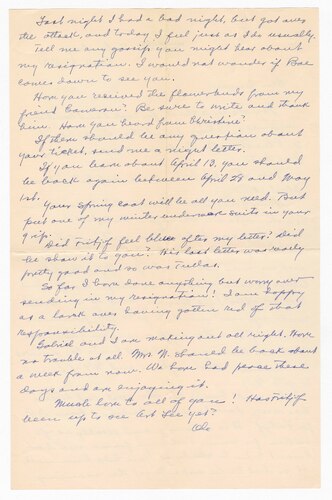 Last night I had a bad night, but got over
the attack, and today I feel just as I do usually.
Tell me any gossip you might hear about
my resignation. I would not wonder if Bae
comes down to see you.
Have you received the flowerbuds from my
friend Cameron? Be sure to write and thank
him. Have you heard from Christine?
If there should be any question about
your ticket, send me a night letter.
If you leave about April 13, you should
be back again between April 28 and May
1st.
Your spring coat will be all you need. But
put one of my winter underwear suits in your
grip.
Did feel blue after my letter? Did
he show it to you? His last letter was really
pretty good and so was
So far I have done anything but worry over
sending in my resignation! I am happy
as a lark over having gotten rid of that
responsibility.
and I are making out all right. Have
no trouble at all. Mrs. N. should be back about
a week from now. We have had peace these
days and are enjoying it.
Much love to all of you! Has
been up to see Lee yet?